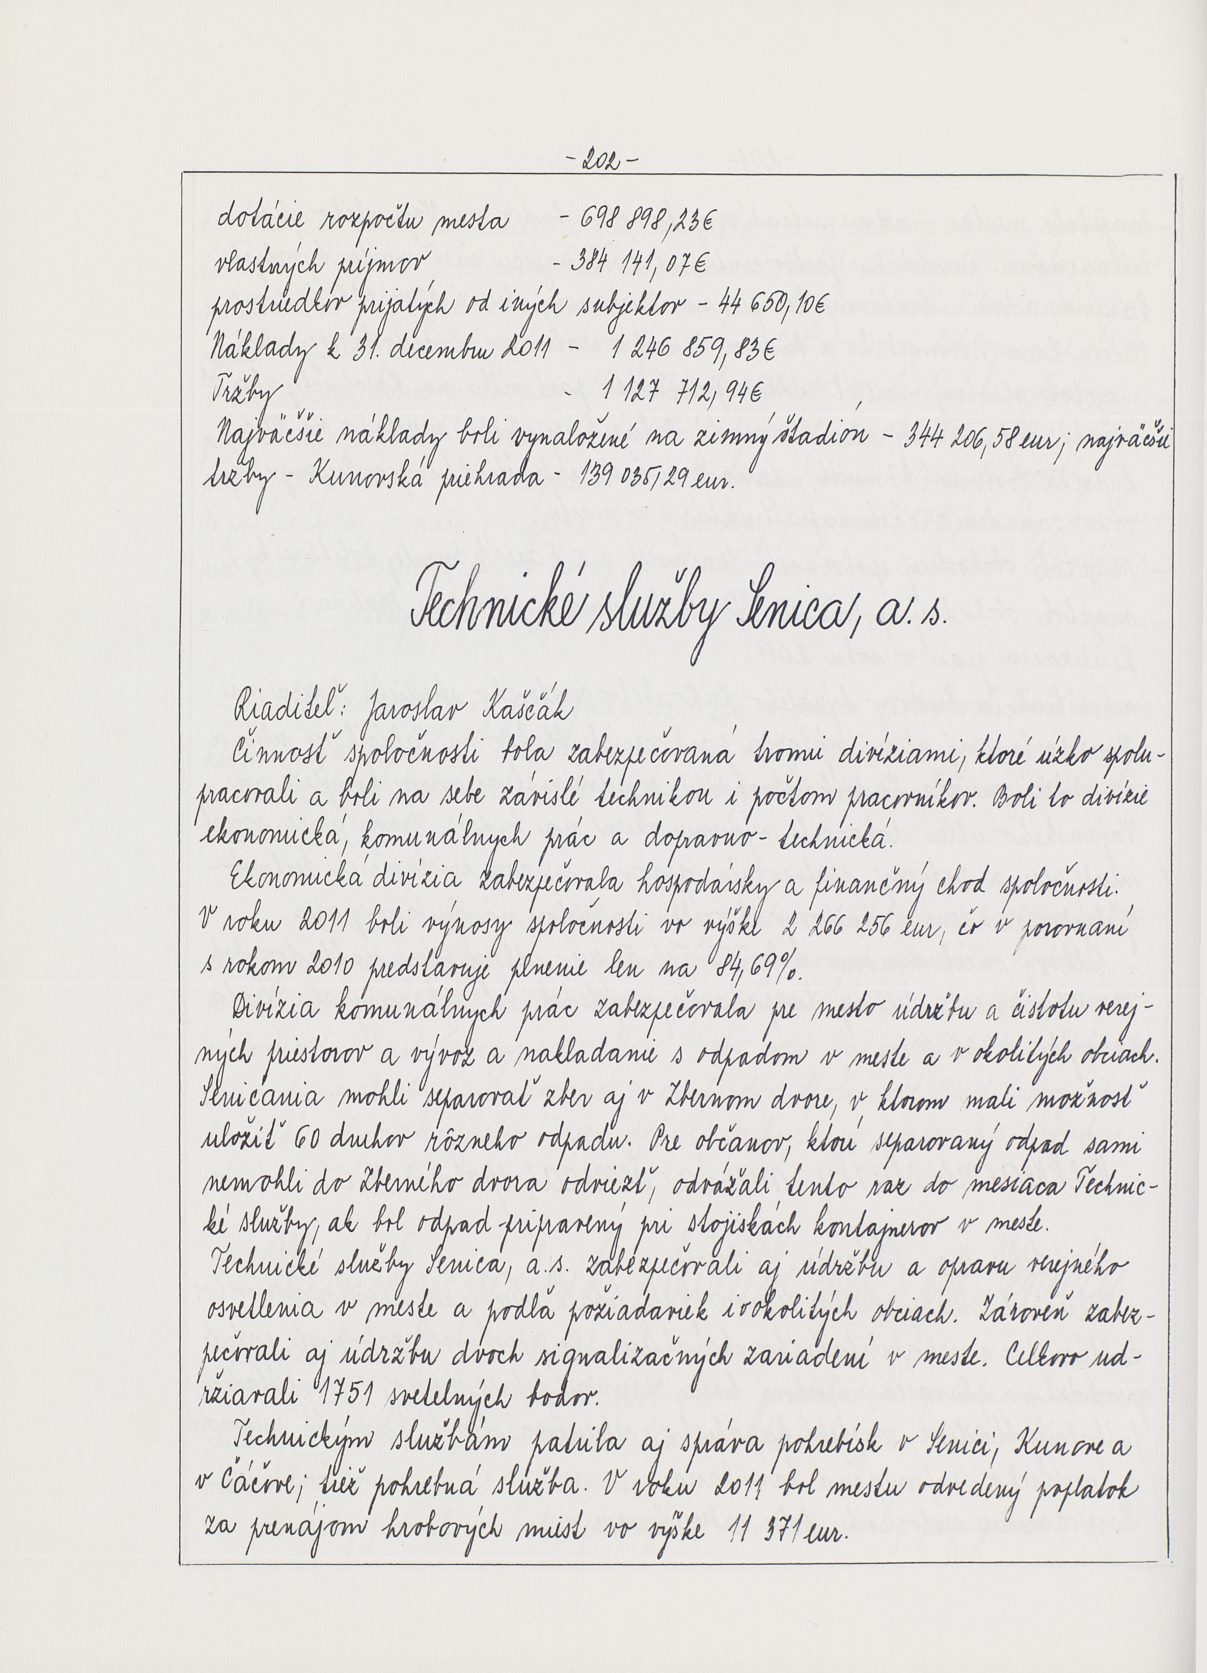 - 202 -
dotácie rozpočtu mesta - 698 898,23€
vlastných príjmov - 384 141,07€
prostriedkov prijatých od iných subjektov - 44 650,10€
Náklady k 31. decembru 2011 - 1 246 859,83€
Tržby - 1 127 712,94€
Najväčšie náklady boli vynaložené na zimný štadión - 344 206,58 eur; najväčšie
tržby - Kunovská priehrada - 139 035,29 eur.
Technické služby Senica, a. s.
Riaditeľ: Jaroslav Kaščák
Činnosť spoločnosti bola zabezpečovaná tromi divíziami, ktoré úzko spolu-
pracovali a boli na sebe závislé technikou i počtom pracovníkov. Boli to divízie
ekonomická, komunálnych prác a dopravno - technická.
Ekonomická divízia zabezpečovala hospodársky a finančný chod spoločnosti.
V roku 2011 boli výnosy spoločnosti vo výške 2 266 256 eur, čo v porovnaní
s rokom 2010 predstavuje plnenie len na 84,69%.
Divízia komunálnych prác zabezpečovala pre mesto údržbu a čistotu verej-
ných priestorov a vývoz a nakladanie s odpadom v meste a v okolitých obciach.
Seničania mohli separovať zber aj v Zbernom dvore, v ktorom mali možnosť
uložiť 60 druhov rôzneho odpadu. Pre občanov, ktorí separovaný odpad sami
nemohli do Zberného dvora odviezť, odvážali tento raz do mesiaca Technic-
ké služby, ak bol odpad pripravený pri stojiskách kontajnerov v meste.
Technické služby Senica, a.s. zabezpečovali aj údržbu a opravu verejného
osvetlenia v meste a podľa požiadaviek i v okolitých obciach. Zároveň zabez-
pečovali aj údržbu dvoch signalizačných zariadení v meste. Celkovo ud-
ržiavali 1751 svetelných bodov.
Technickým službám patrila aj správa pohrebísk v Senici, Kunove a
v Čáčove; tiež pohrebná služba. V roku 2011 bol mestu odvedený poplatok
za prenájom hrobových miest vo výške 11 371 eur.